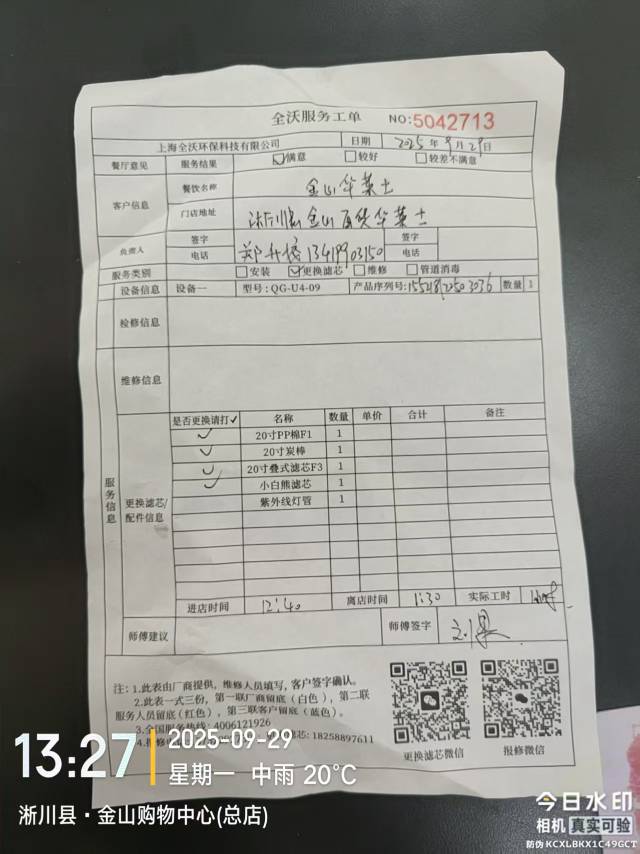 全沃服务工单 NO:5042713
上海全沃环保科技有限公司 日期 2025年9月29日
餐厅意见 服务结果 ☑满意 □较好 □较差不满意
客户信息 餐饮名称 金山华莱士
门店地址 淅川县金山百货华莱士
负责人 签字 签字
电话 13419903150 电话
服务类别 □安装 ☑更换滤芯 □维修 □管道消毒
设备信息 设备一 型号:QG-U4-09 产品序列号: 数量 1
检修信息
维修信息
服务信息
更换滤芯/配件信息
是否更换请打✓ 名称 数量 单价 合计 备注
✓ 20寸PP棉F1 1
✓ 20寸炭棒 1
✓ 20寸叠式滤芯F3 1
✓ 小白熊滤芯 1
紫外线灯管 1
进店时间 12:40 离店时间 1:30 实际工时
师傅建议 师傅签字
注:1.此表由厂商提供,维修人员填写,客户签字确认。
2.此表一式三份,第一联厂商留底(白色),第二联
服务人员留底(红色),第三联客户留底(蓝色)。
3.全国服务热线:4006121926
18258897611
更换滤芯微信 报修微信
13:27 2025-09-29
星期一 中雨 20°C
淅川县·金山购物中心(总店)
今日水印
相机 真实可验
防伪 KCXLBKX1C49GCT